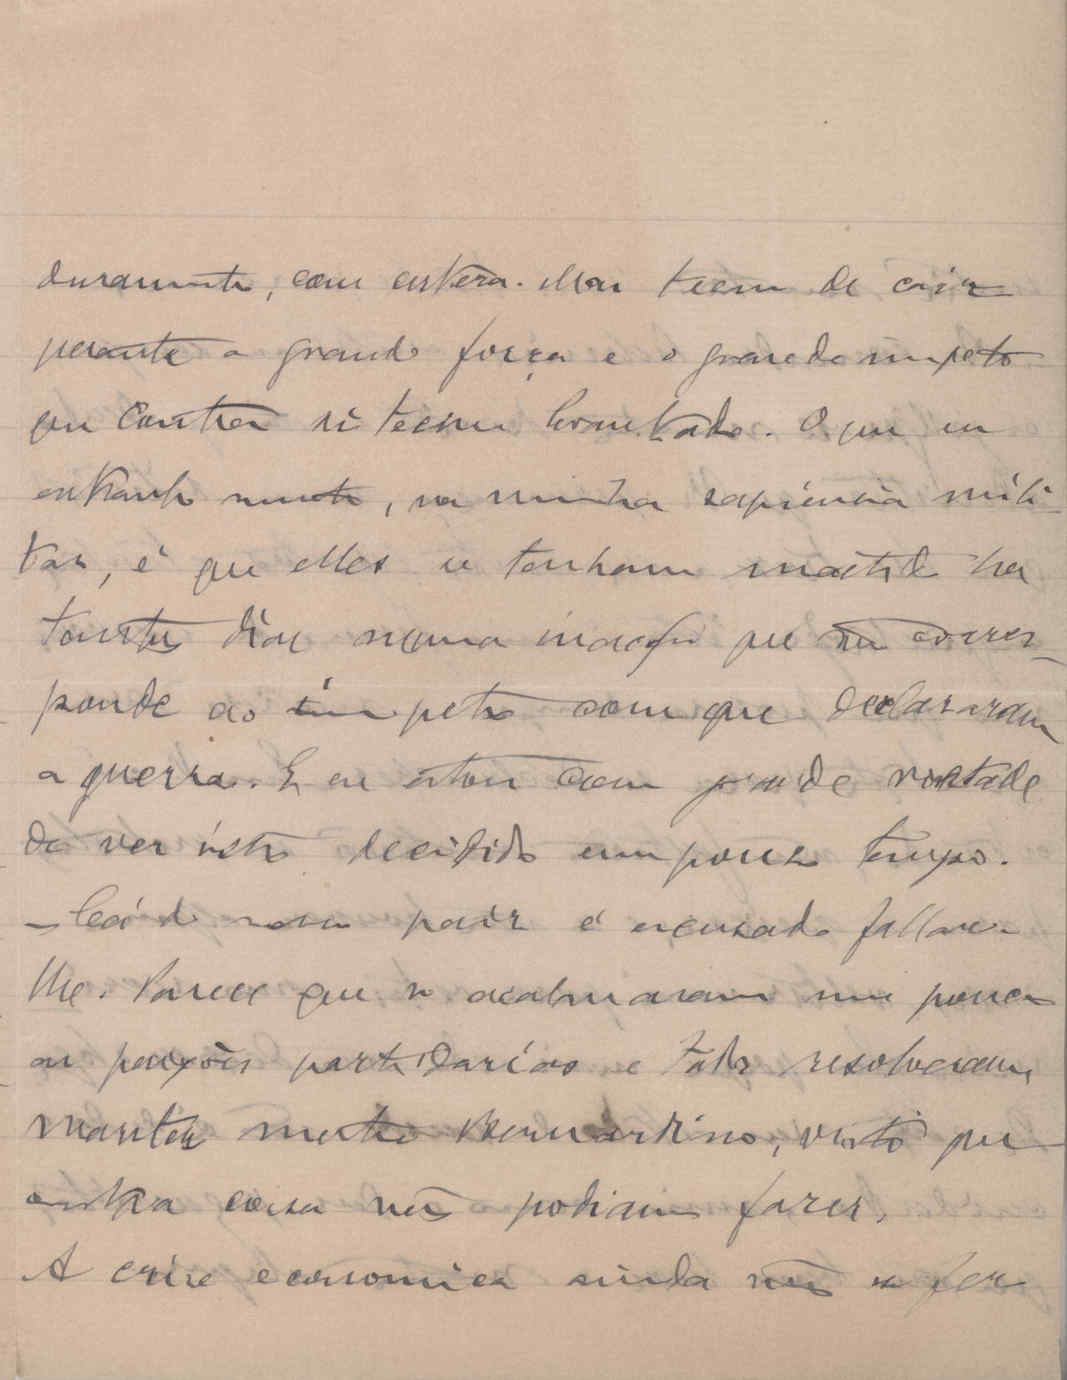 duramente, com certeza. Mas teem de cair
perante a grande força e o grande impeto
que contra si teem levantado. O que eu
extranho muito, na minha sapiencia mili-
tar, é que elles se tenham mantido ha
tantos dias numa inacção que não corres-
ponde ao impeto com que declararam
a guerra. E eu estou com grande vontade
de ver isto decidido em pouco tempo.
– Cá do nosso paiz é escusado fallar-
lhe. Parece que se acalmaram um pouco
as paixões partidarias e todos resolveram
manter mestre Bernardino, visto que
outra coisa não podiam fazer.
A crise economica ainda não se fez